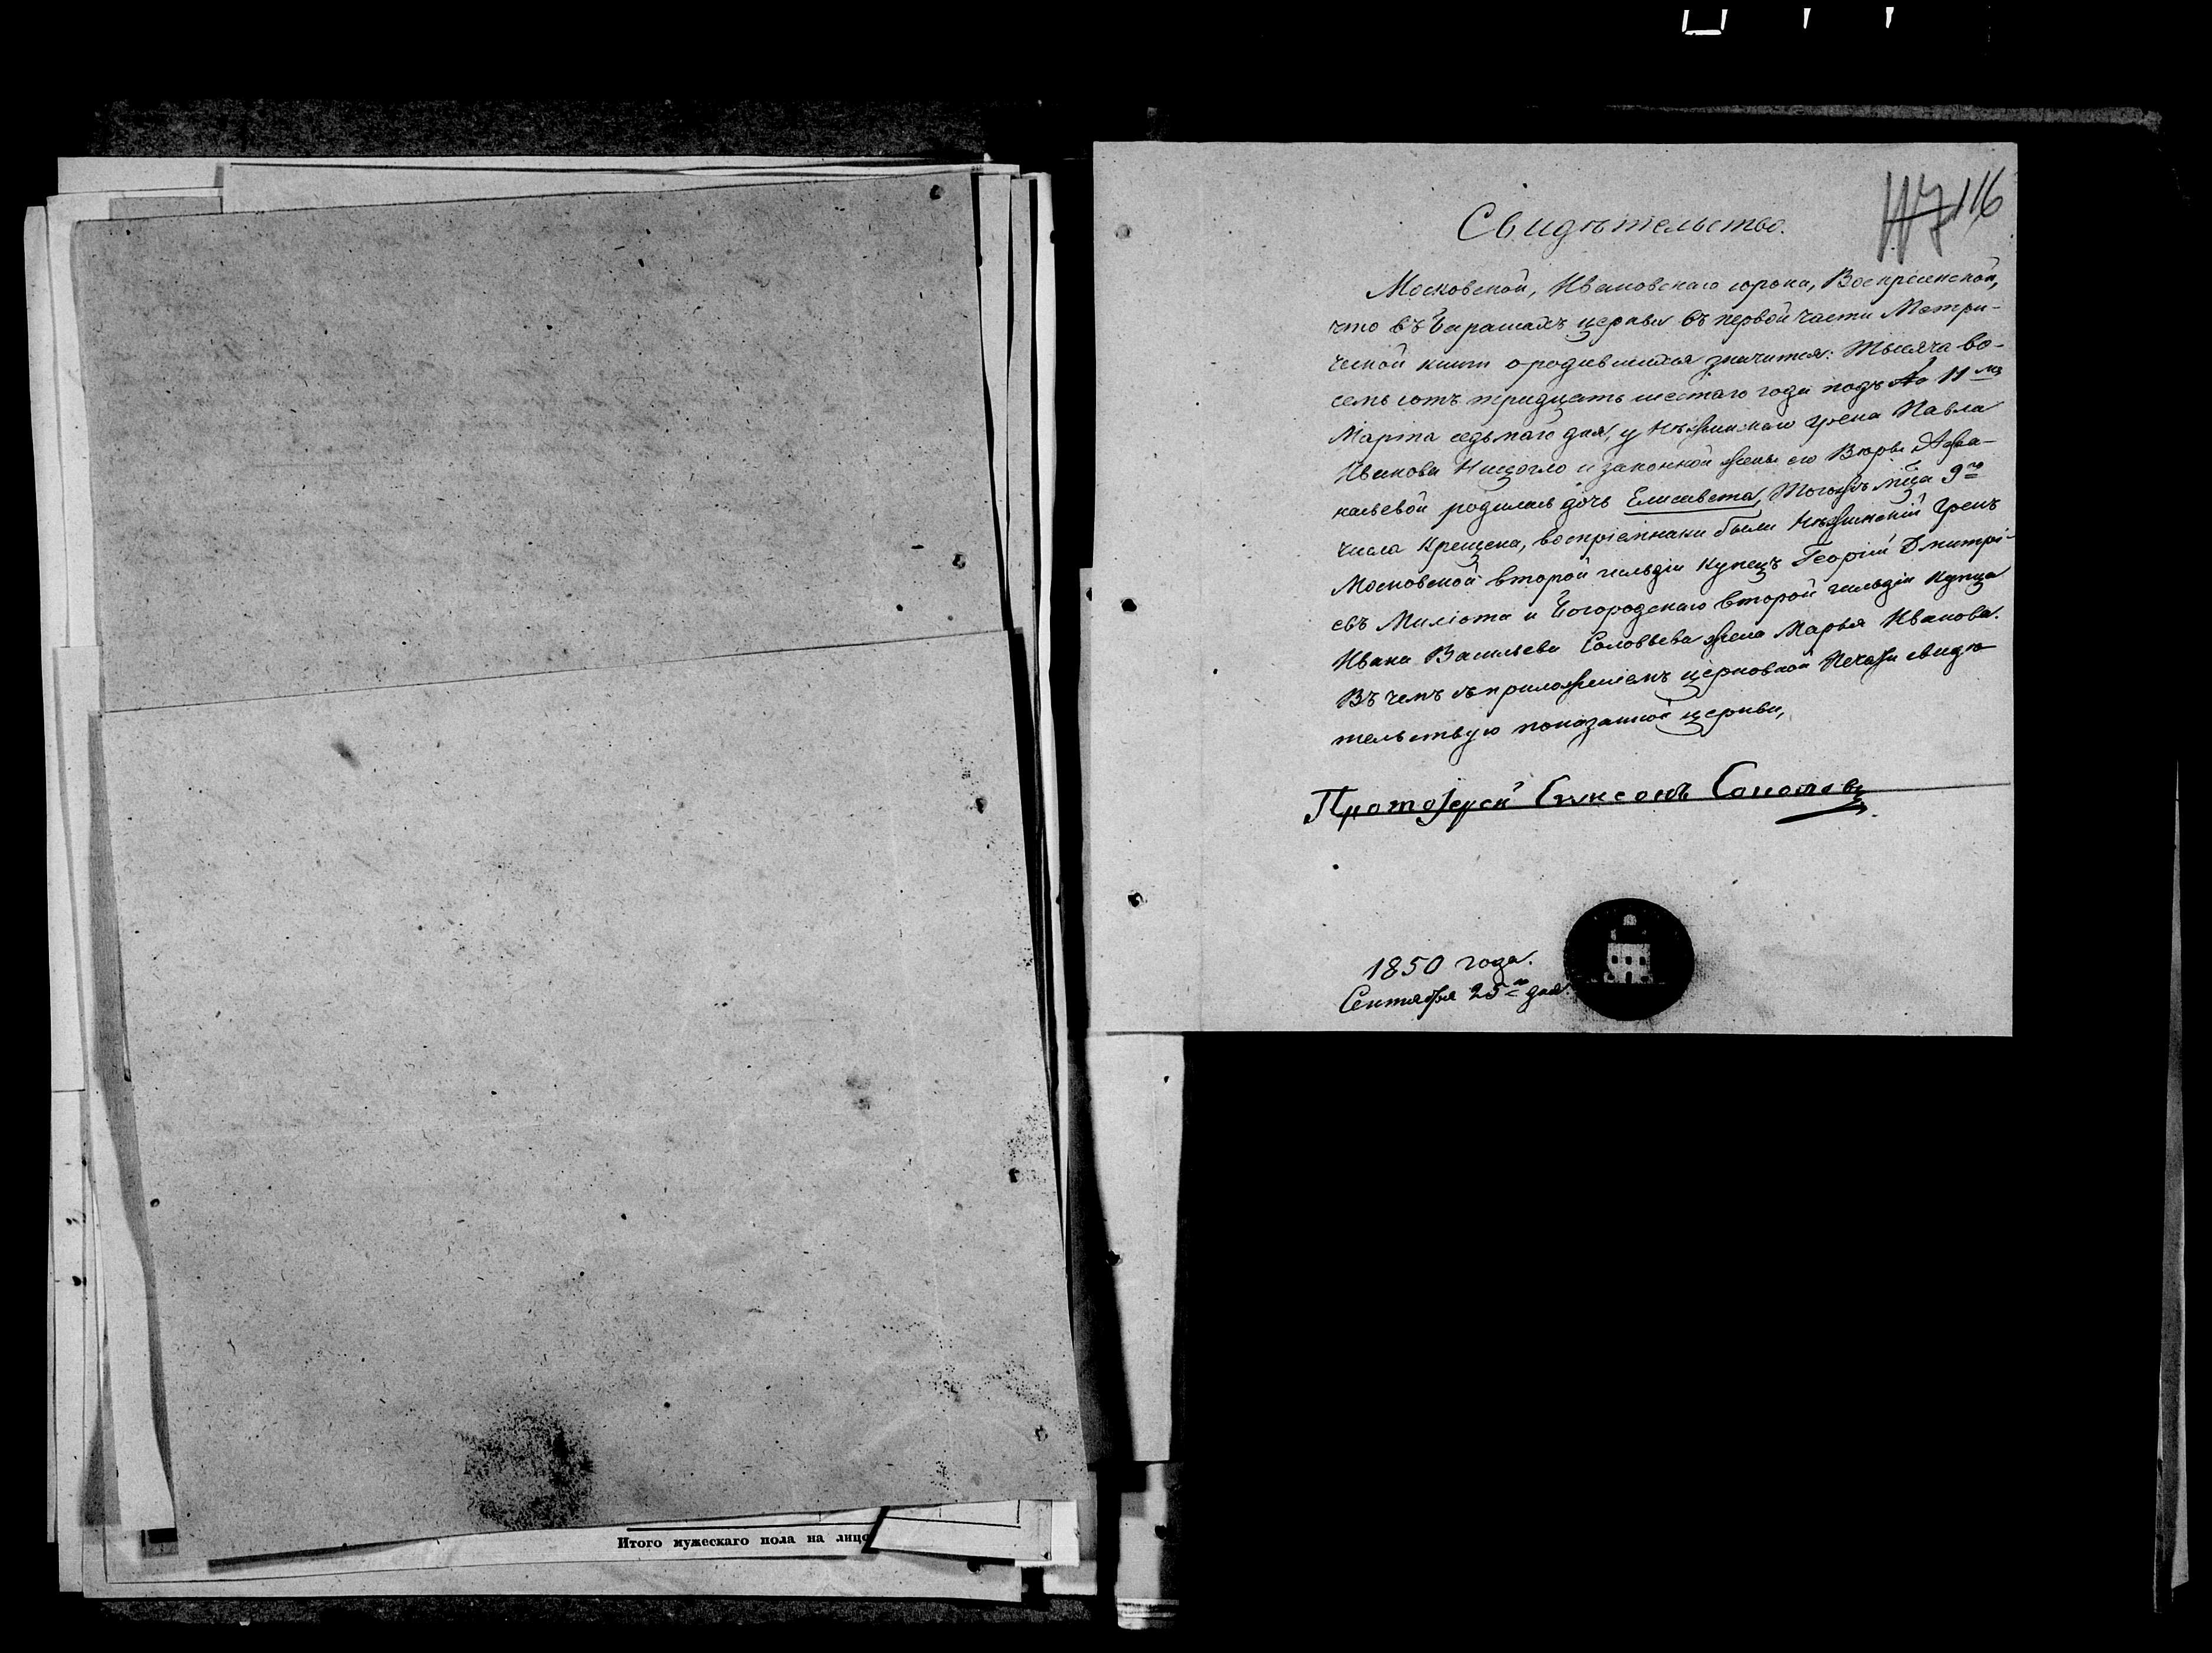 117 116
Свидѣтельство.
Московской, Ивановскаго сорока, Воскресенской,
что въ Барашахъ церкви въ первой части Метри-
ческой книги о родившихся значится: Тысяча во-
семь сотъ тридцать шестаго года подъ № 11мъ
Марта седьмаго дня, у Нѣжинскаго грека Павла
Иванова и законной жены его Вѣры Афа-
насьевой родилась дочь Елисавета, Тогожъ мца 9го
числа Крещена, воспріемники были Нѣжинскій Грекъ
Московской второй гильдіи Купецъ Георгій Дмитрі-
евъ Миліота и Богородскаго второй гильдіи Купца
Ивана Васильева Соловьева жена Марья Иванова.
Въ чемъ съ приложеніемъ церковной Печати свидѣ
тельствую показанной церкви,
Протоіерей Симеонъ
1850 года.
Сентября 25го дня.
Итого мужескаго пола на лицо